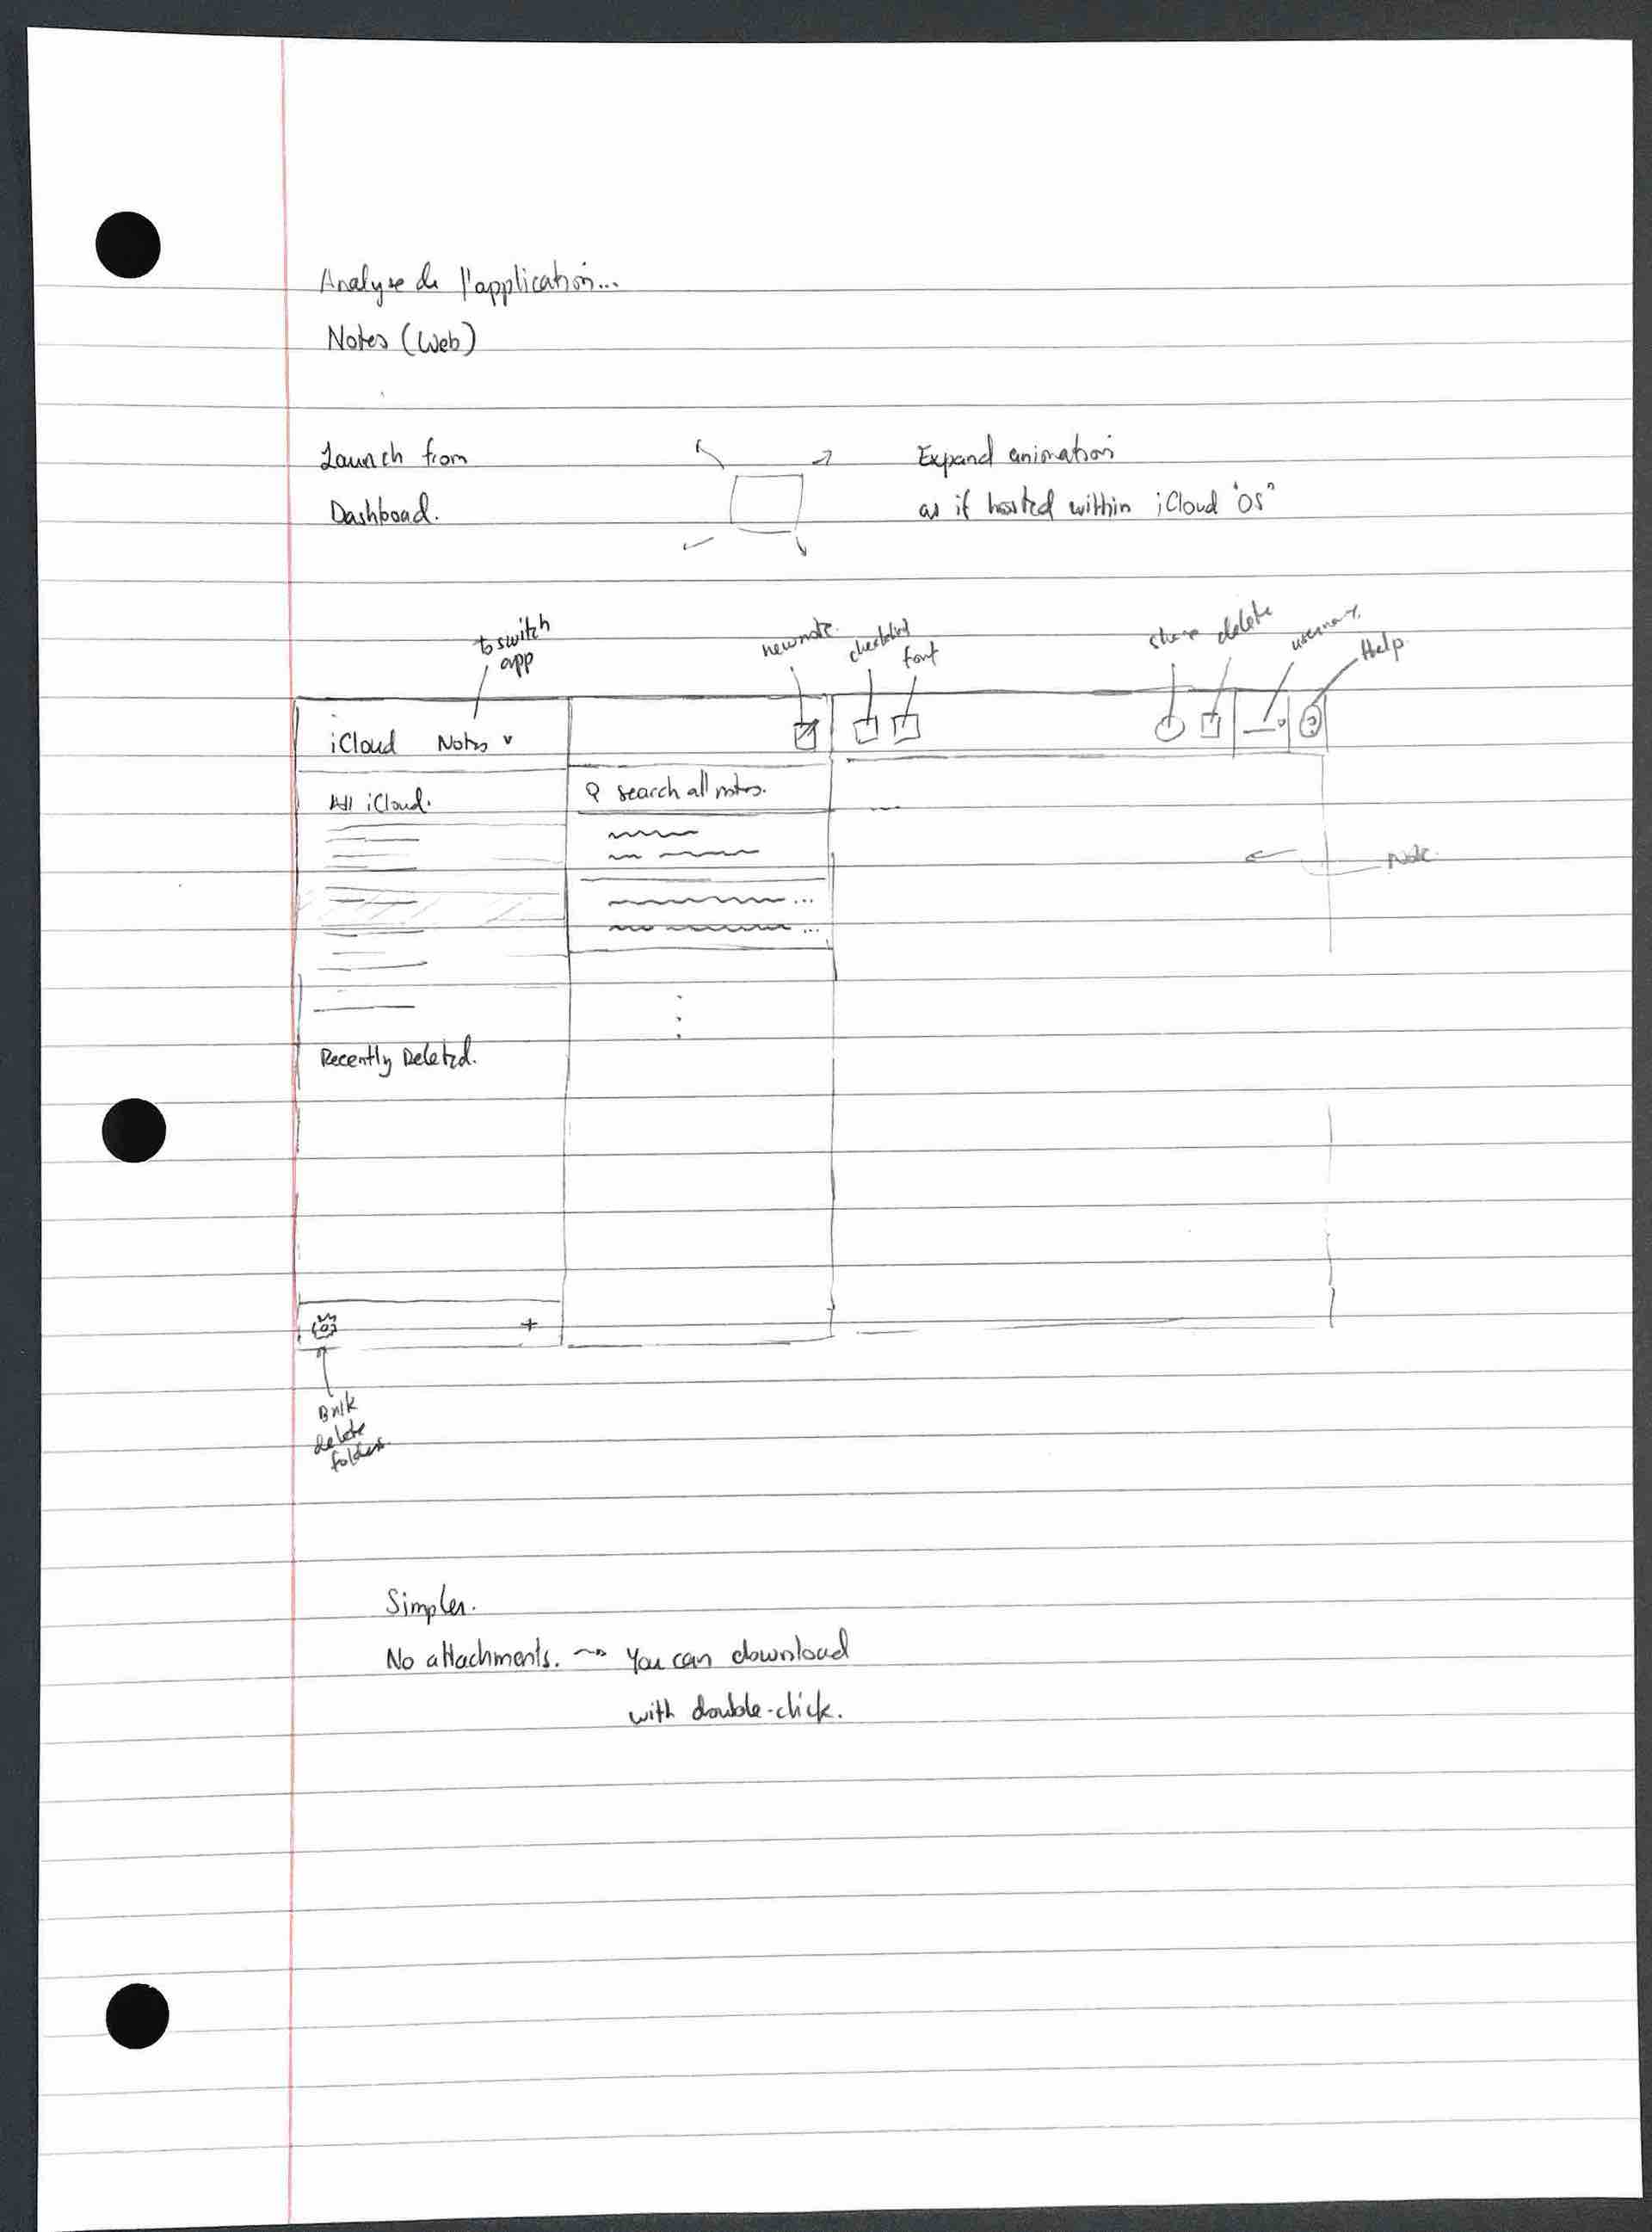 Analyse de l'application...
Notes (Web)
Launch from
Dashboard.
Expand animation
as if hosted within iCloud "OS"
to switch
app
new note.
checklist
font
share
delete
Help
iCloud Notes v
All iCloud.
search all notes.
Note.
Recently Deleted.
+
Bulk
delete
folders.
Simpler.
No attachments. ~> You can download
with double-click.